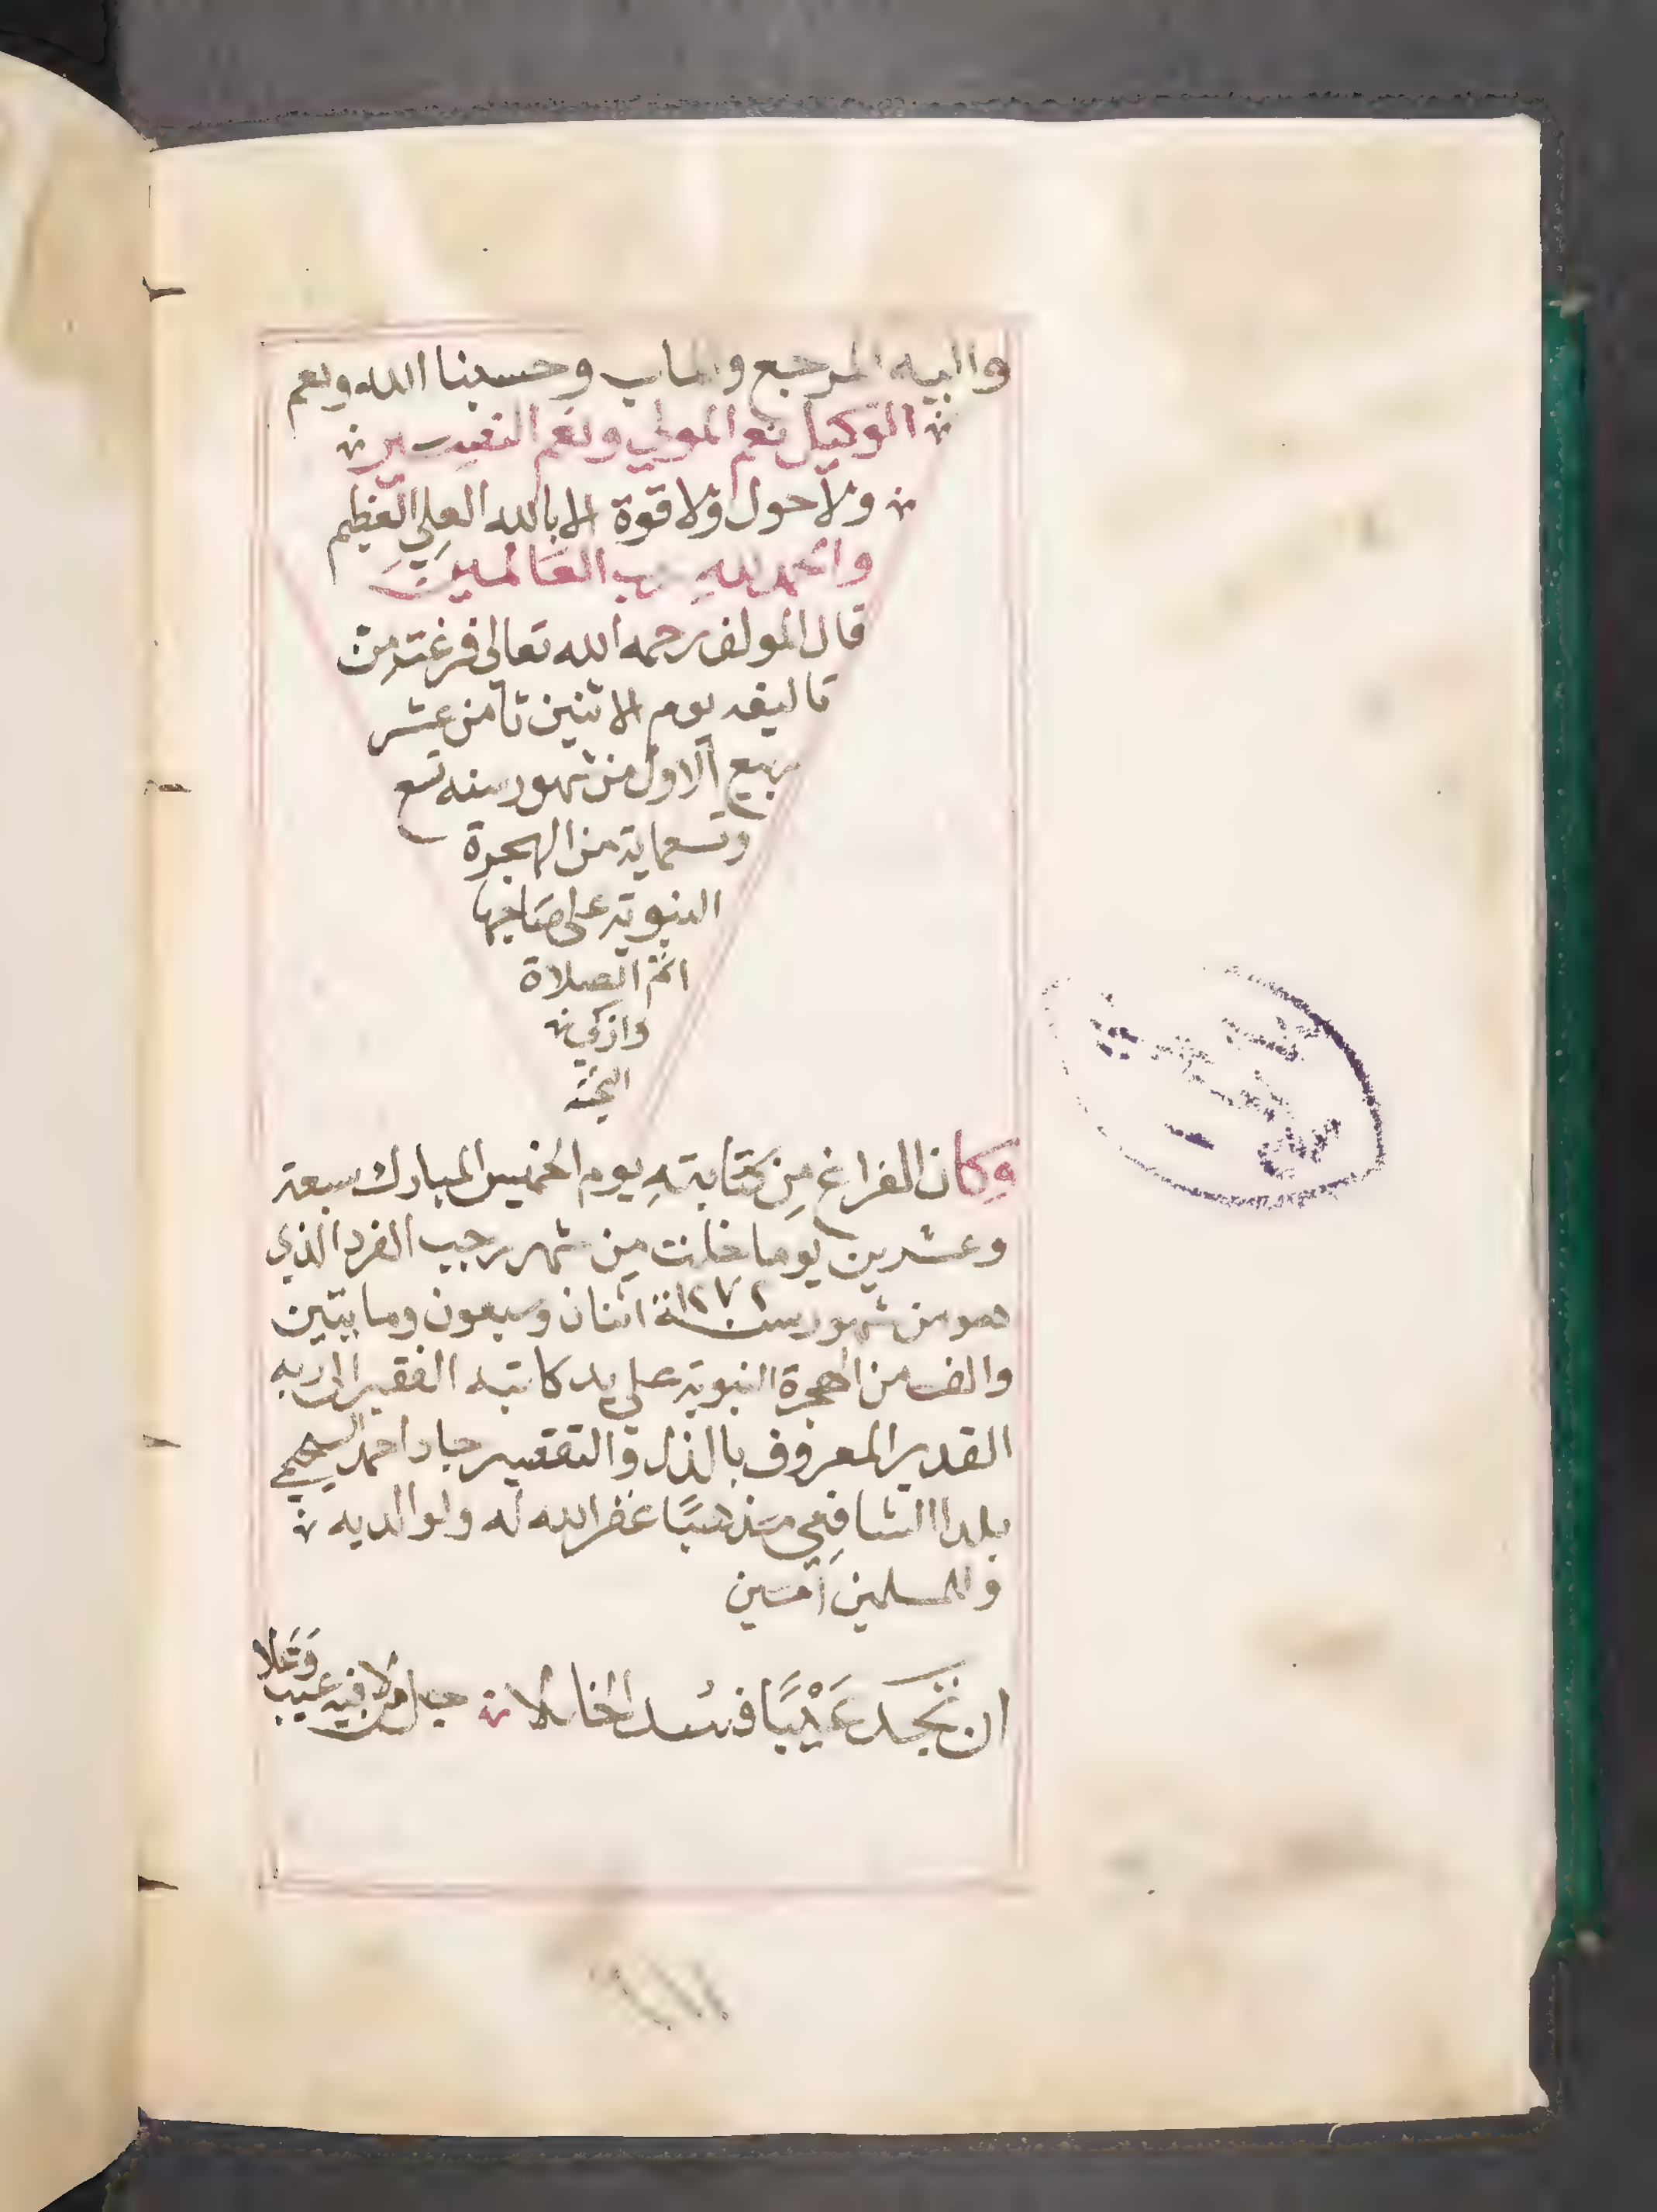 واليه المرجع والماب وحسبنا الله ونعم
الوكيل نعم المولي ونعم النصير
ولا حول ولا قوة الا بالله العلي العظيم
والحمد لله رب العالمين
قال المولف رحمه الله تعالي فرغت من
تاليفه يوم الاثنين ثامن عشر
ربيع الاول من شهور سنه تسع
وتسعماية من الهجرة
النبوية على صاحبها
اتم الصلاة
وازكي
التحية
وكان الفراغ من كتابته يوم الخميس المبارك سبعة
وعشرين يوما خلت من شهر رجب الفرد الذي
هو من شهور سنة ١٢٧٢ اثنان وسبعون ومايتين
والف من الهجرة النبوية علي يد كاتبه الفقير الى ربه
القدير المعروف بالذل والتقصير جاد احمد
بلدا الشافعي مذهبا غفر الله له ولوالديه
وللمسلمين آمين
ان تجد عَيْبًا فسُد الخللا جل من لا فيه عيب وعلا